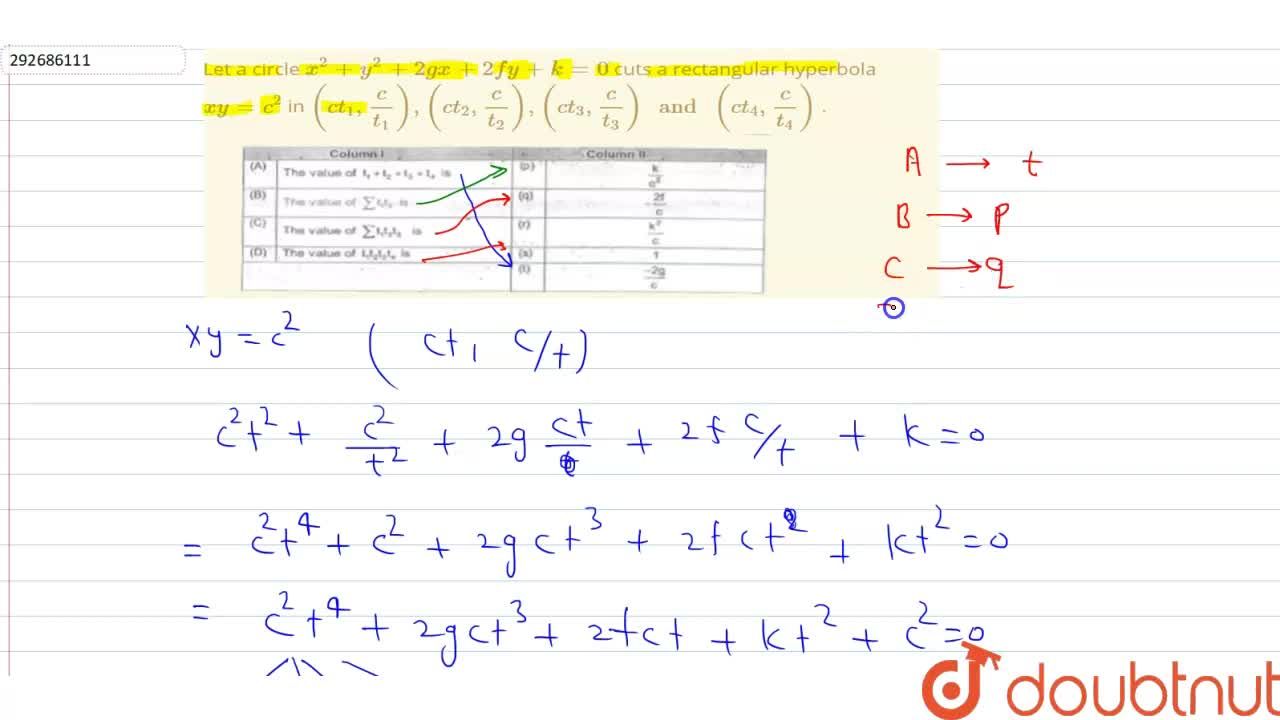 292686111
Let a circle x² + y² + 2gx + 2fy + k = 0 cuts a rectangular hyperbola
xy = c² in (ct₁, c/t₁), (ct₂, c/t₂), (ct₃, c/t₃) and (ct₄, c/t₄) .
Column I Column II
(A) The value of t₁ + t₂ + t₃ + t₄ is (p) k/c²
(B) The value of ∑ t₁t₂ is (q) -2f/c
(C) The value of ∑ t₁t₂t₃ is (r) k²/c
(D) The value of t₁t₂t₃t₄ is (s) 1
(t) -2g/c
A → t
B → p
C → q
xy = c² ( ct, c/t)
c²t² + c²/t² + 2g ct + 2f c/t + k = 0
= c²t⁴ + c² + 2gct³ + 2fct + kt² = 0
= c²t⁴ + 2gct³ + 2fct + kt² + c² = 0
doubtnut